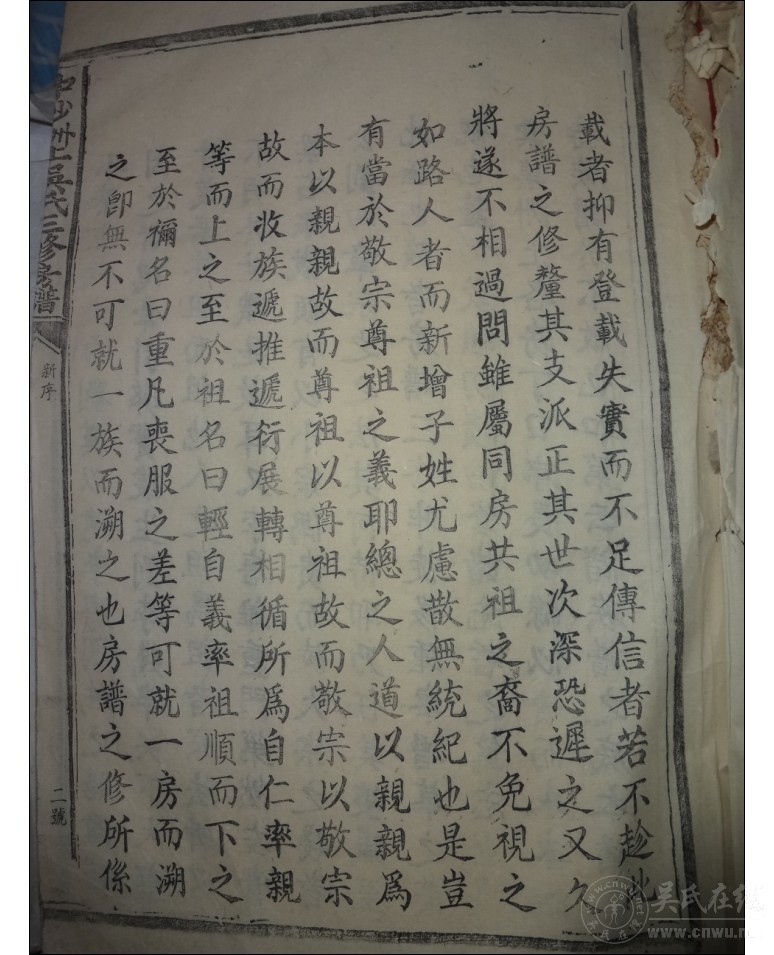 載者抑有登載失實而不足傳信者若不趁此
房譜之修釐其支派正其世次深恐遲之又久
將遂不相過問雖屬同房共祖之裔不免視之
如路人者而新增子姓尤慮散無統紀也是豈
有當於敬宗尊祖之義耶總之人道以親親為
本以親親故而尊祖以尊祖故而敬宗以敬宗
故而收族遞推遞衍展轉相循所爲自仁率親
等而上之至於祖名曰輕自義率祖順而下之
至於禰名曰重凡喪服之差等可就一房而溯
之卽無不可就一族而溯之也房譜之修所係
中沙洲上吳氏三修房譜
新序
二號
吴氏在线
www.cnwu.net